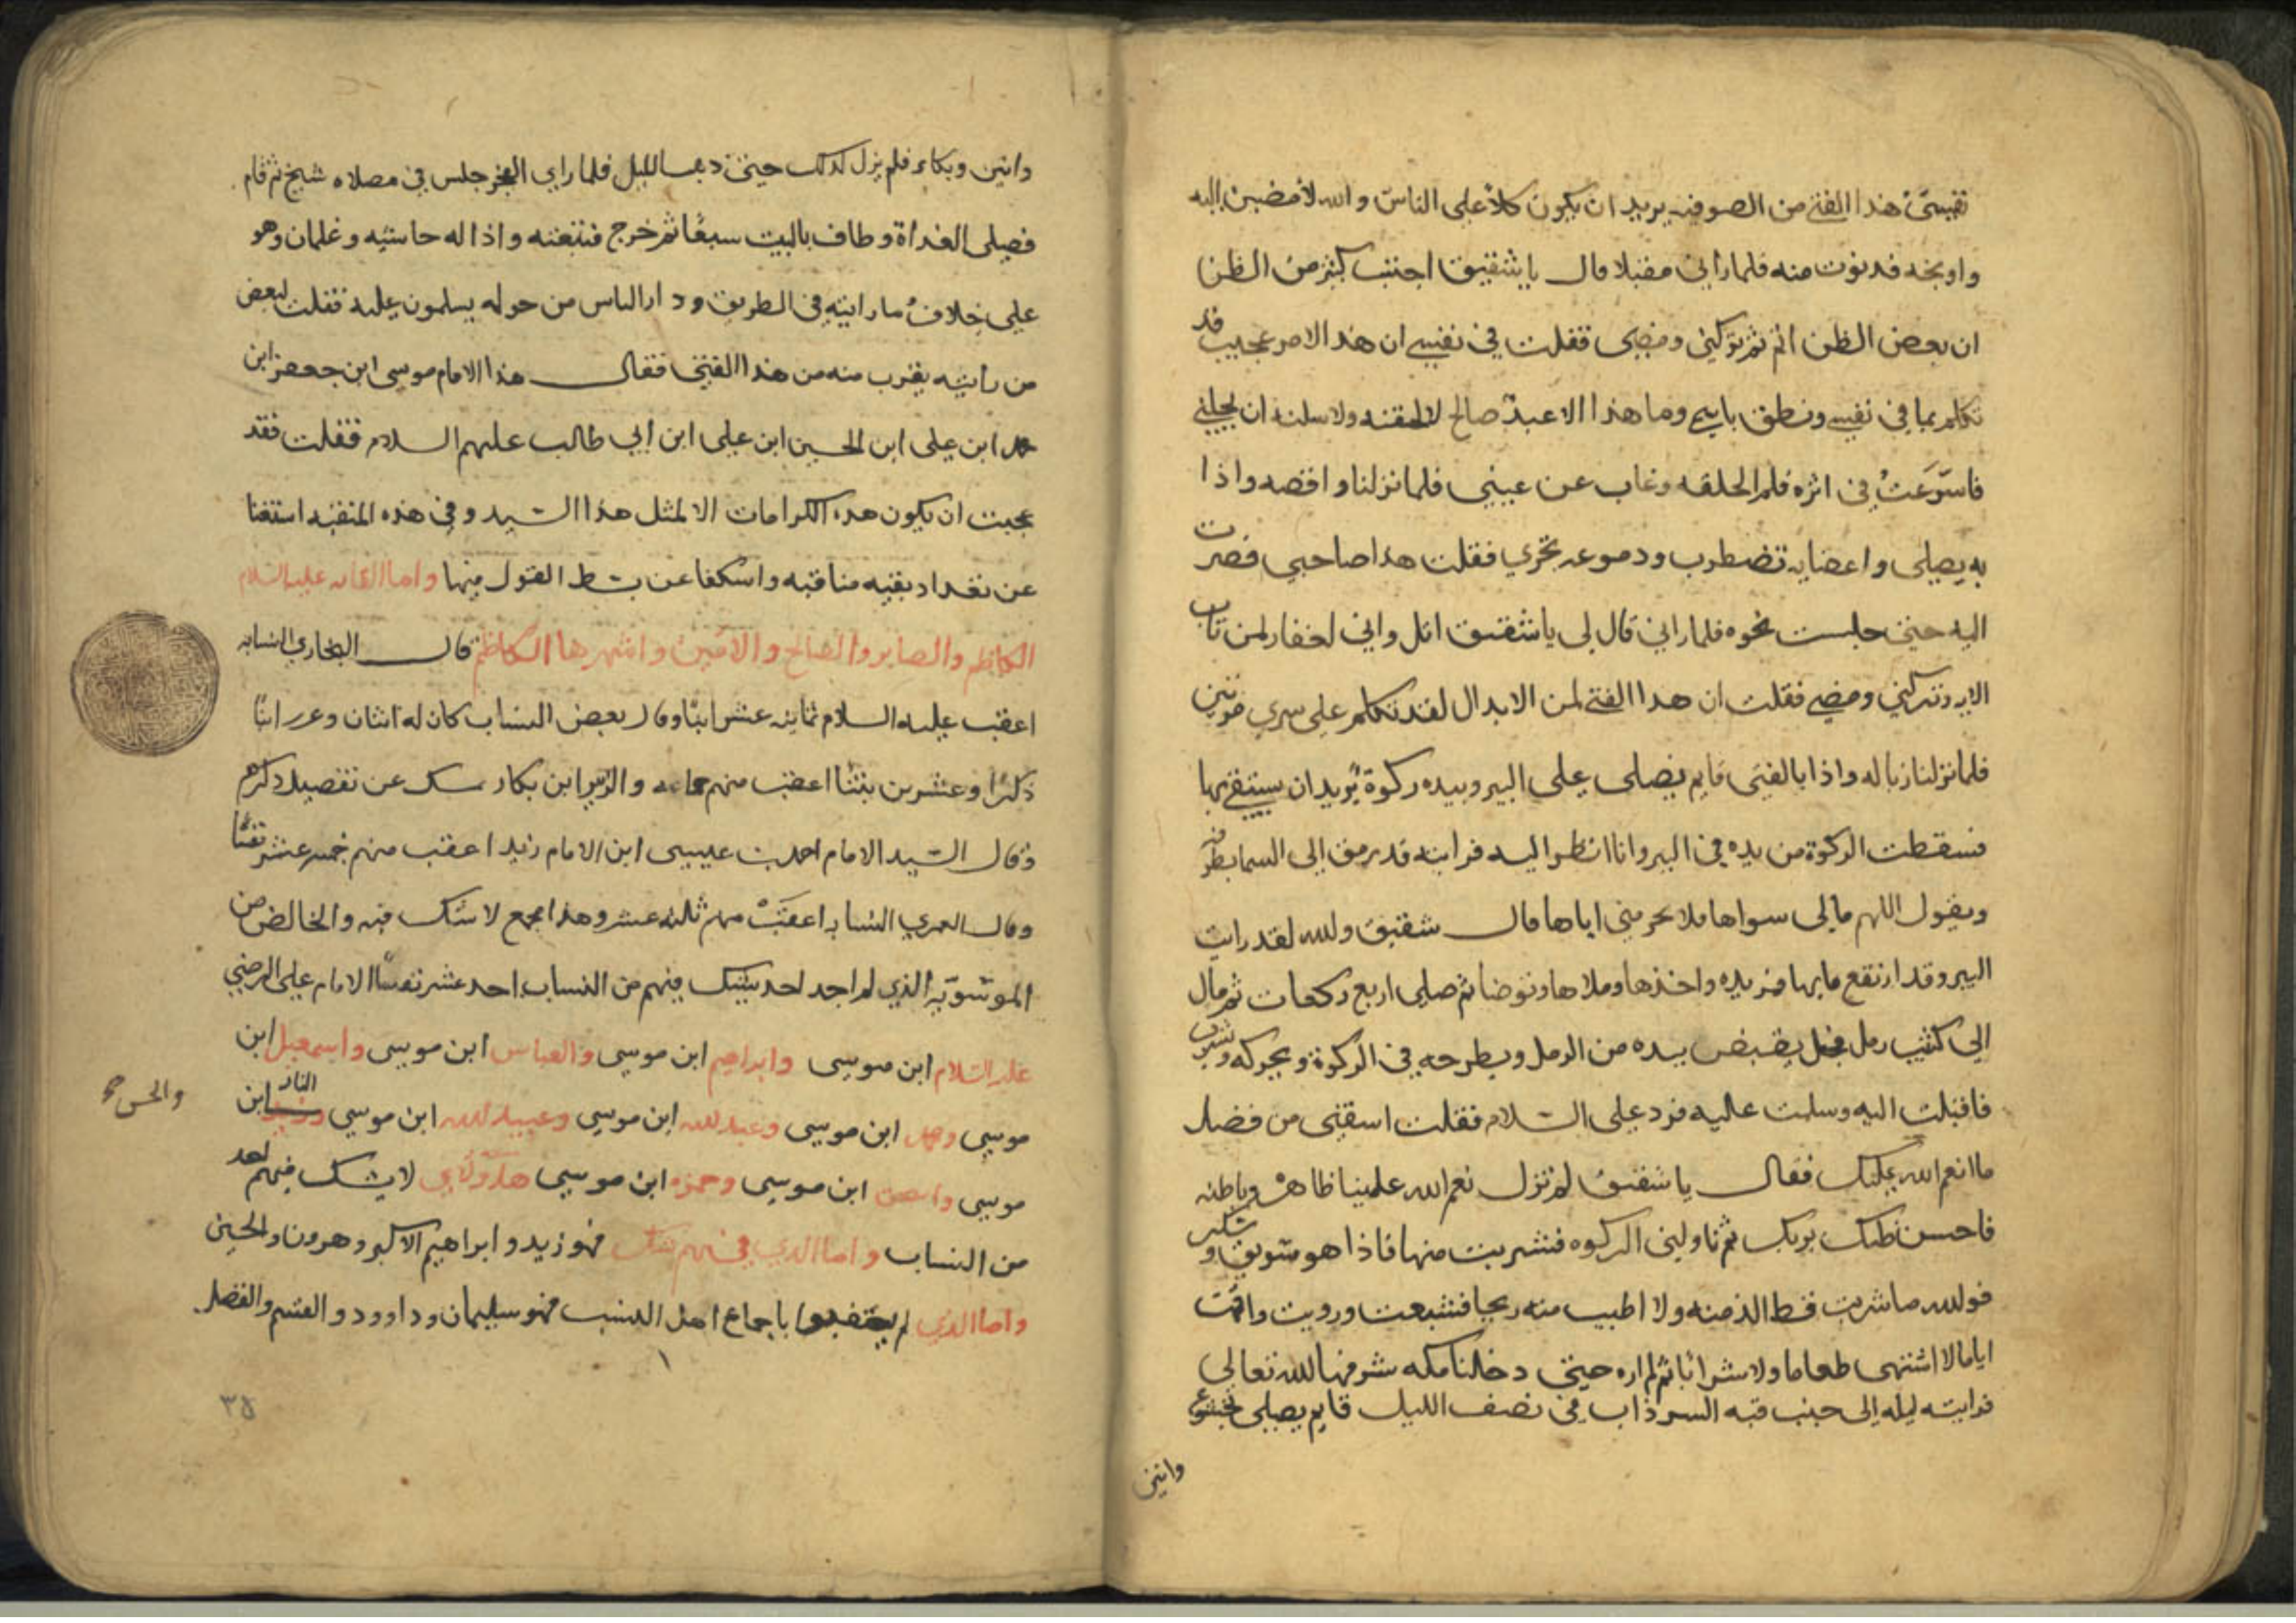 نفسي هذا الفتى من الصوفيه يريد ان يكون كلاً على الناس والله لأمضين اليه
واوبخه فدنوت منه فلما رأني مقبلا قال يا شقيق اجتنب كثير من الظن
ان بعض الظن اثم ثم تركني ومضى فقلت في نفسي ان هذا الامر عجيب قد
تكلم بما في نفسي ونطق باسمي وما هذا الا عبد صالح لالحقنه ولاسلنه ان يحللني
فاسرعت في اثره فلم الحلقه وغاب عن عيني فلما نزلنا واقصه واذا
به يصلي واعضايه تضطرب ودموعه تجري فقلت هذا صاحبي فصرت
اليه حتى جلست نحوه فلما راني قال لي يا شقيق اتل واني لغفار لمن تاب
الايه وتركني ومضى فقلت ان هذا الفتى لمن الابدال لقد تكلم على سري مرتين
فلما نزلنا زباله واذا بالفتى قايم يصلي على البير وبيده ركوة يريد ان يستقي بها
فسقطت الركوة من يده في البير وانا انظر اليه فرايته قد رمق الى السما بطرفه
ويقول اللهم مالي سواها فلا تحرمني اياها قال شقيق والله لقد رايت
البير وقد ارتفع مايها فمد يده واخذها وملاها وتوضا ثم صلى اربع ركعات ثم مال
الى كثيب رمل فجعل يقبض بيده من الرمل ويطرحه في الركوة ويحركه ويشرب
فاقبلت اليه وسلمت عليه فرد علي السلام فقلت اسقني من فضل
ما انعم الله عليك فقال يا شقيق لم تزل نعم الله علينا ظاهره وباطنه
فاحسن ظنك بربك ثم ناولني الركوه فشربت منها فاذا هو سويق وسكر
فوالله ما شربت قط الذ منه ولا اطيب منه ريحا فشبعت ورويت واقمت
اياما لا اشتهي طعاما ولا شرابا ثم لم اره حتى دخلنا مكه شرفها الله تعالى
فرايته ليله الى جنب قبه السرداب في نصف الليل قايم يصلي بخشوع
وانين
وانين وبكاء فلم يزل كذلك حتى ذهب الليل فلما راى الفجر جلس في مصلاه سبح ثم قام
فصلى الغداة وطاف بالبيت سبعًا ثم خرج فتبعته واذا له حاشيه وغلمان وهو
على خلاف ما رايته في الطريق ودار الناس من حوله يسلمون عليه فقلت لبعض
من رأيته يقرب منه من هذا الفتى فقال هذا الامام موسى ابن جعفر ابن
محمد ابن علي ابن الحسين ابن علي ابن ابي طالب عليهم السلام فقلت فقد
عجبت ان يكون هذه الكرامات الا لمثل هذا السيد وفي هذه المنقبه استغنا
عن تعداد بقيه مناقبه واستكفا عن بسط القول فيها واما القابه عليه السلام
الكاظم والصابر والصالح والامين واشهرها الكاظم قال البخاري النسابه
اعقب عليه السلام ثمانيه عشر ابنًا وقال بعض النساب كان له اثنان وعشرون ابنًا
ذكرًا وعشرين بنتا اعقب منهم جماعه والزبير ابن بكار سكت عن تفصيل ذكرهم
وقال السيد الامام احمد بن عيسى ابن الامام زيد اعقب منهم خمسه عشر نفسًا
وقال العمري النسابه اعقبت منهم ثلثه عشر وهذا مجمع لا شك فيه والخالص من
الموسويه الذي لم اجد احد يشك فيهم من النساب احد عشر نفسًا الامام علي الرضي
عليه السلام ابن موسى وابراهيم ابن موسى والعباس ابن موسى واسمعيل ابن
موسى ومحمد ابن موسى وعبدالله ابن موسى وعبيدالله ابن موسى وزيد النار ابن
والحسن صح
موسى واسحق ابن موسى وحمزه ابن موسى هاولاي لا يشك فيهم احد
من النساب واما الذي فيهم شك فهو زيد وابراهيم الاكبر وهرون والحسين
واما الذي لم يعقبوا باجماع اهل النسب فهو سليمان وداوود والقسم والفضل
٣٥